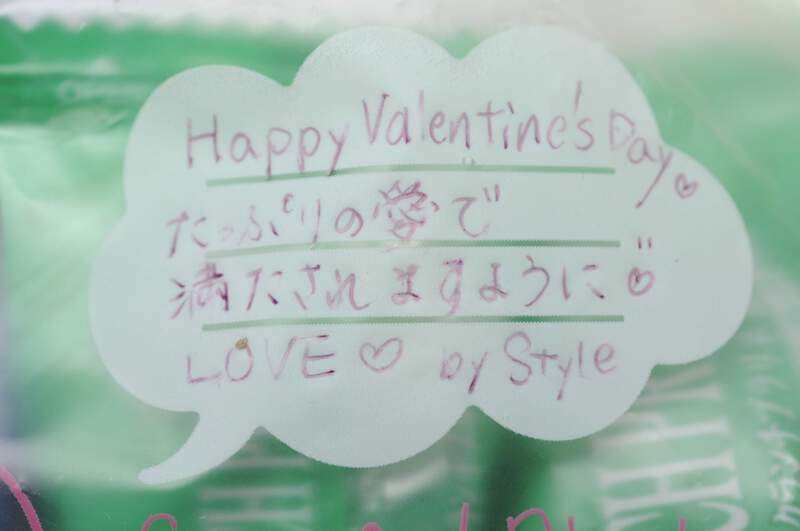 Happy Valentine's Day ♡
たっぷりの愛で
満たされますように ♡
LOVE ♡ by Style